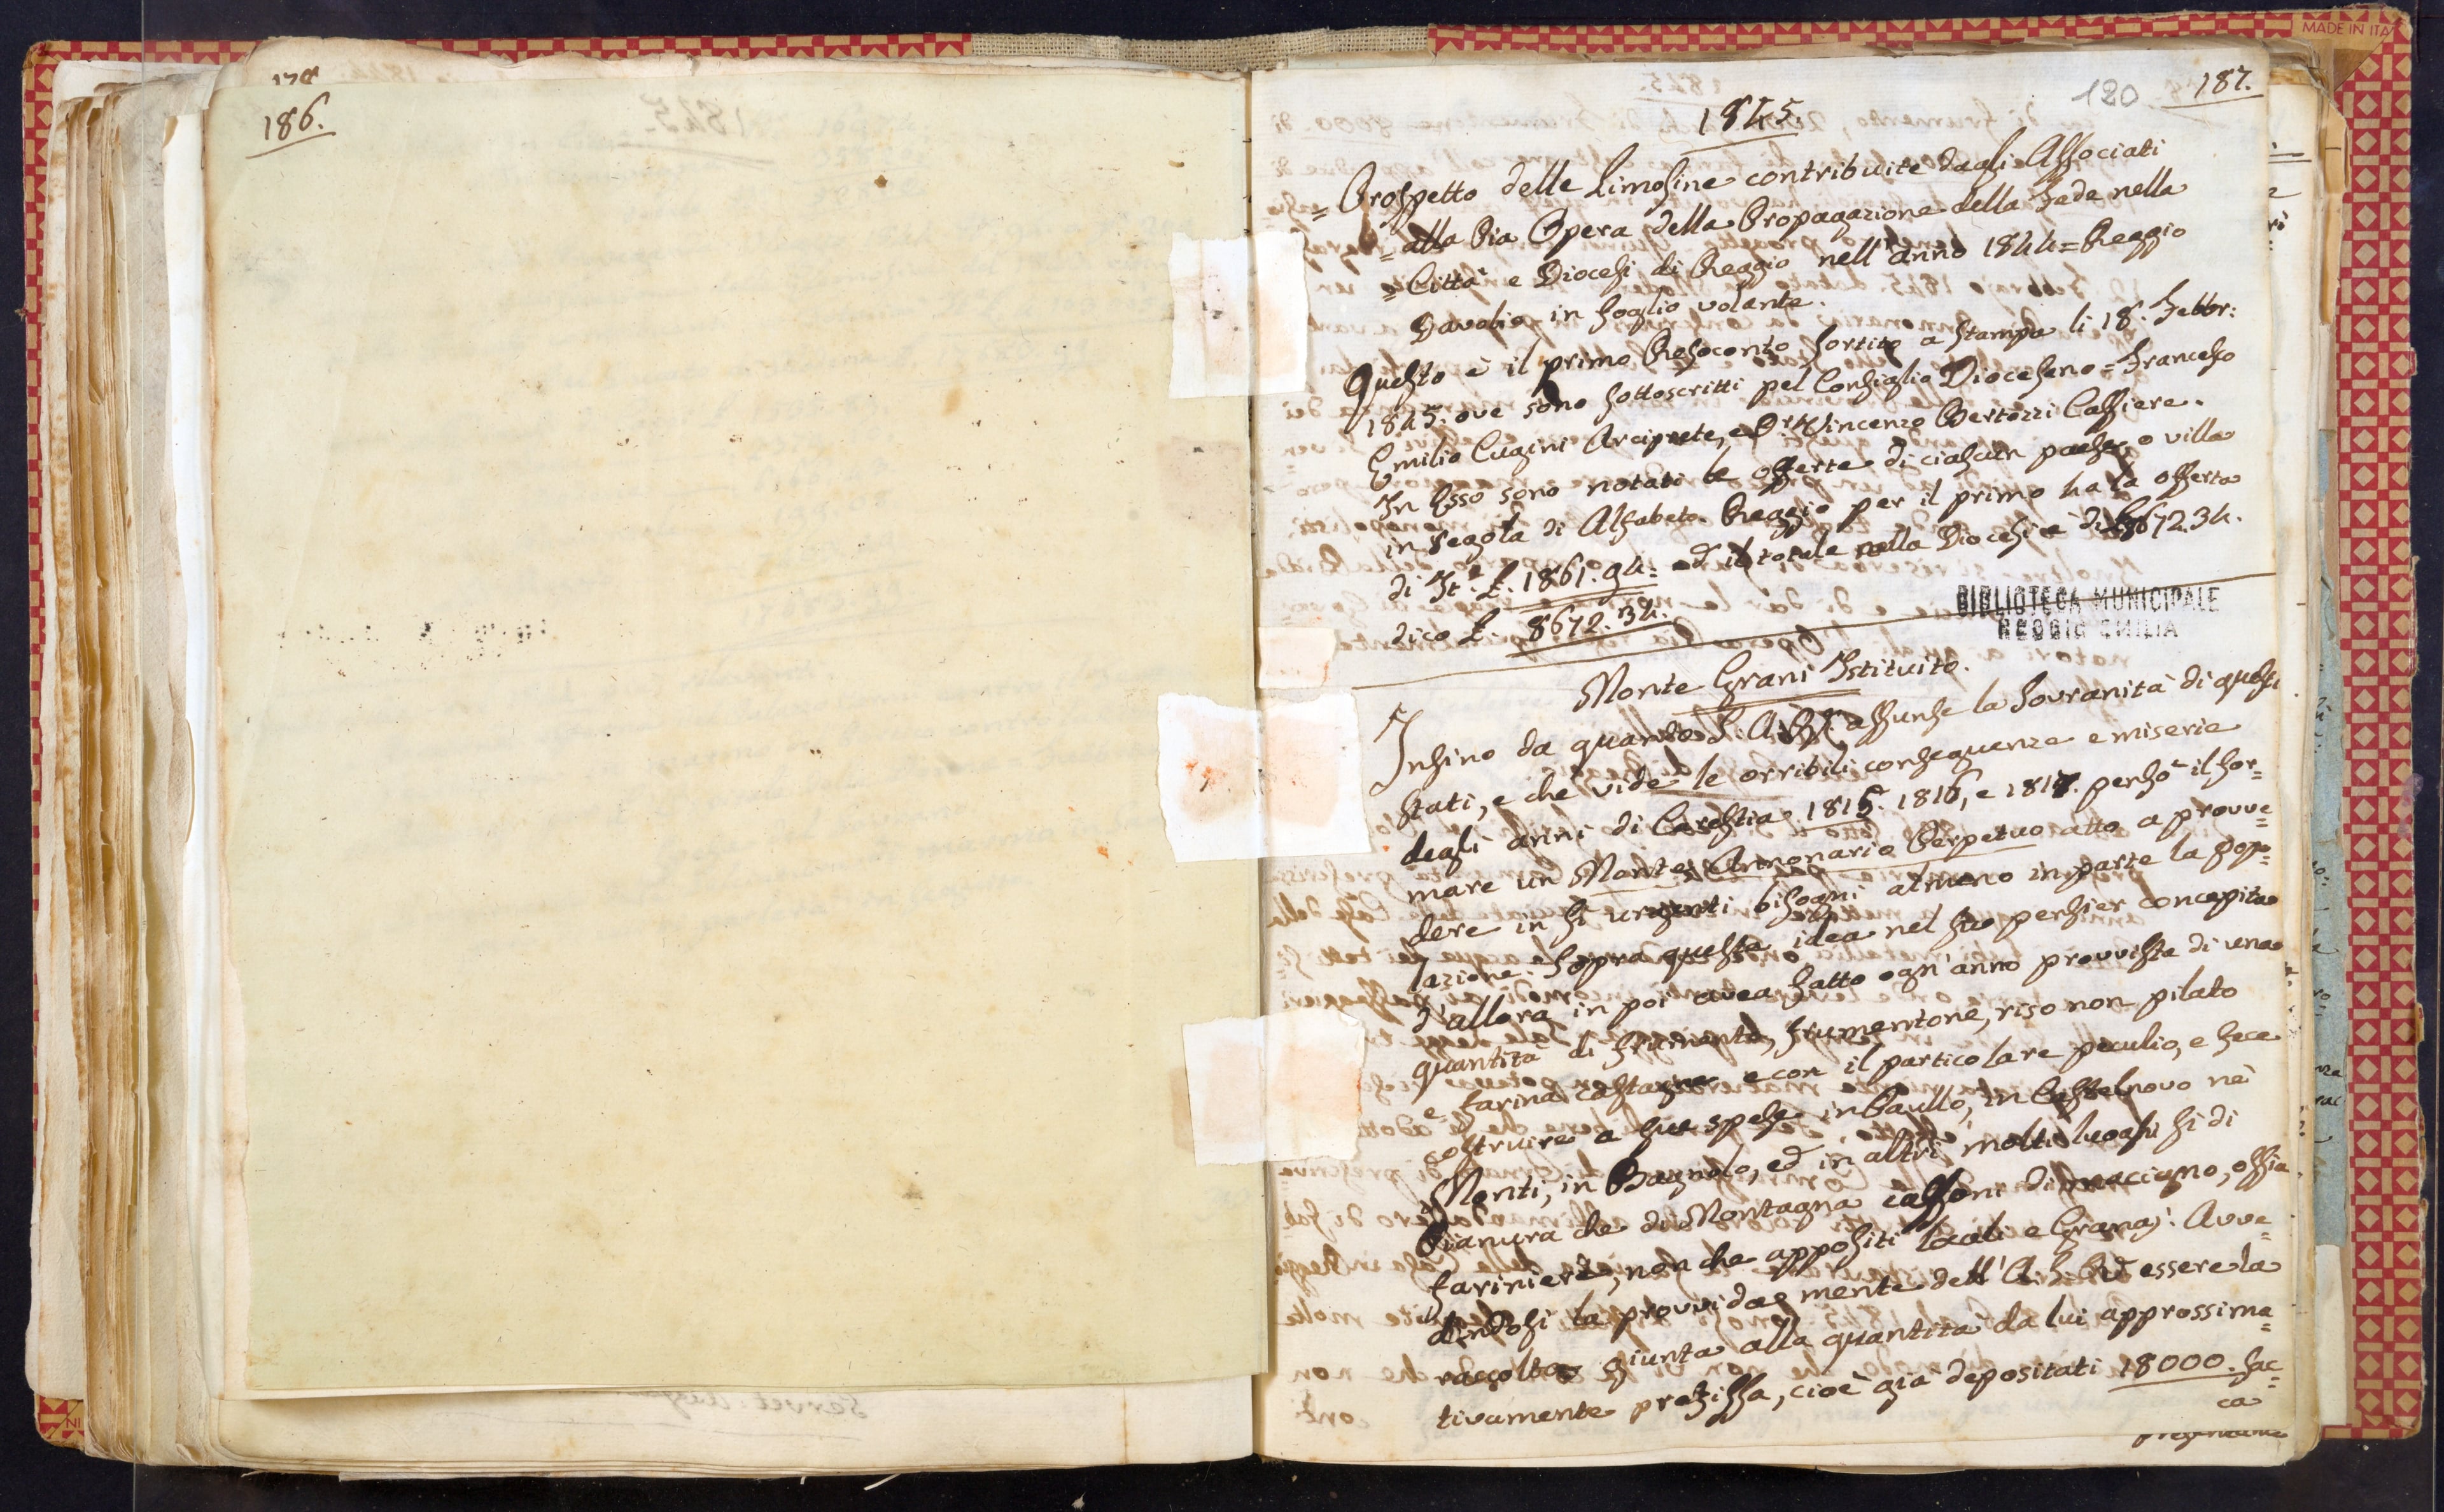 186.
187.
120
1845.
= Prospetto delle Limosine contribuite dagli Associati
= alla Pia Opera della Propagazione della Fede nella
= Città e Diocesi di Reggio nell'anno 1844 = Reggio
Davolio in foglio volante.
Questo è il primo Resoconto sortito a stampa li 18. Febbr:
1845. ove sono sottoscritti pel Consiglio Diocesano = Francesco
Emilio Cugini Arciprete, e Dr Vincenzo Bertozzi Cassiere.
In Esso sono notati le offerte di ciascun paese, o villa
in regola di Alfabeto. Reggio per il primo ha la offerta
di It.e £. 1861.94= ed il totale nella Diocesi è di £ 8672.34.
dico £. 8672.34.
BIBLIOTECA MUNICIPALE
REGGIO EMILIA
Monte Grani Istituito.
Insino da quando S. A. R. assunse la Sovranità di questi
Stati, e che vide le orribili conseguenze e miserie
degli anni di Carestia 1815. 1816, e 1817. pensò il for=
mare un Monte Annonario Perpetuo atto a provve=
dere in sì urgenti bisogni almeno in parte la popo=
lazione. Sopra questa idea nel suo pensier concepita
d'allora in poi avea fatto ogn'anno provvista di una
quantità di frumento, frumentone, riso non pilato
e farina castagne e con il particolare peculio, e fece
costruire a sue spese in Paullo, in Castelnovo nè
Monti, in Bagnolo, ed in altri molti luoghi sì di
Pianura che di Montagna cassoni di macigno, ossia
fariniere, non che appositi locali e Granaj. Avve=
dendosi la provvida mente dell'A. S. Rd essere la
raccolta giunta alla quantità da lui approssima=
tivamente prefissa, cioè già depositati 18000. sac=
ca
MADE IN ITA